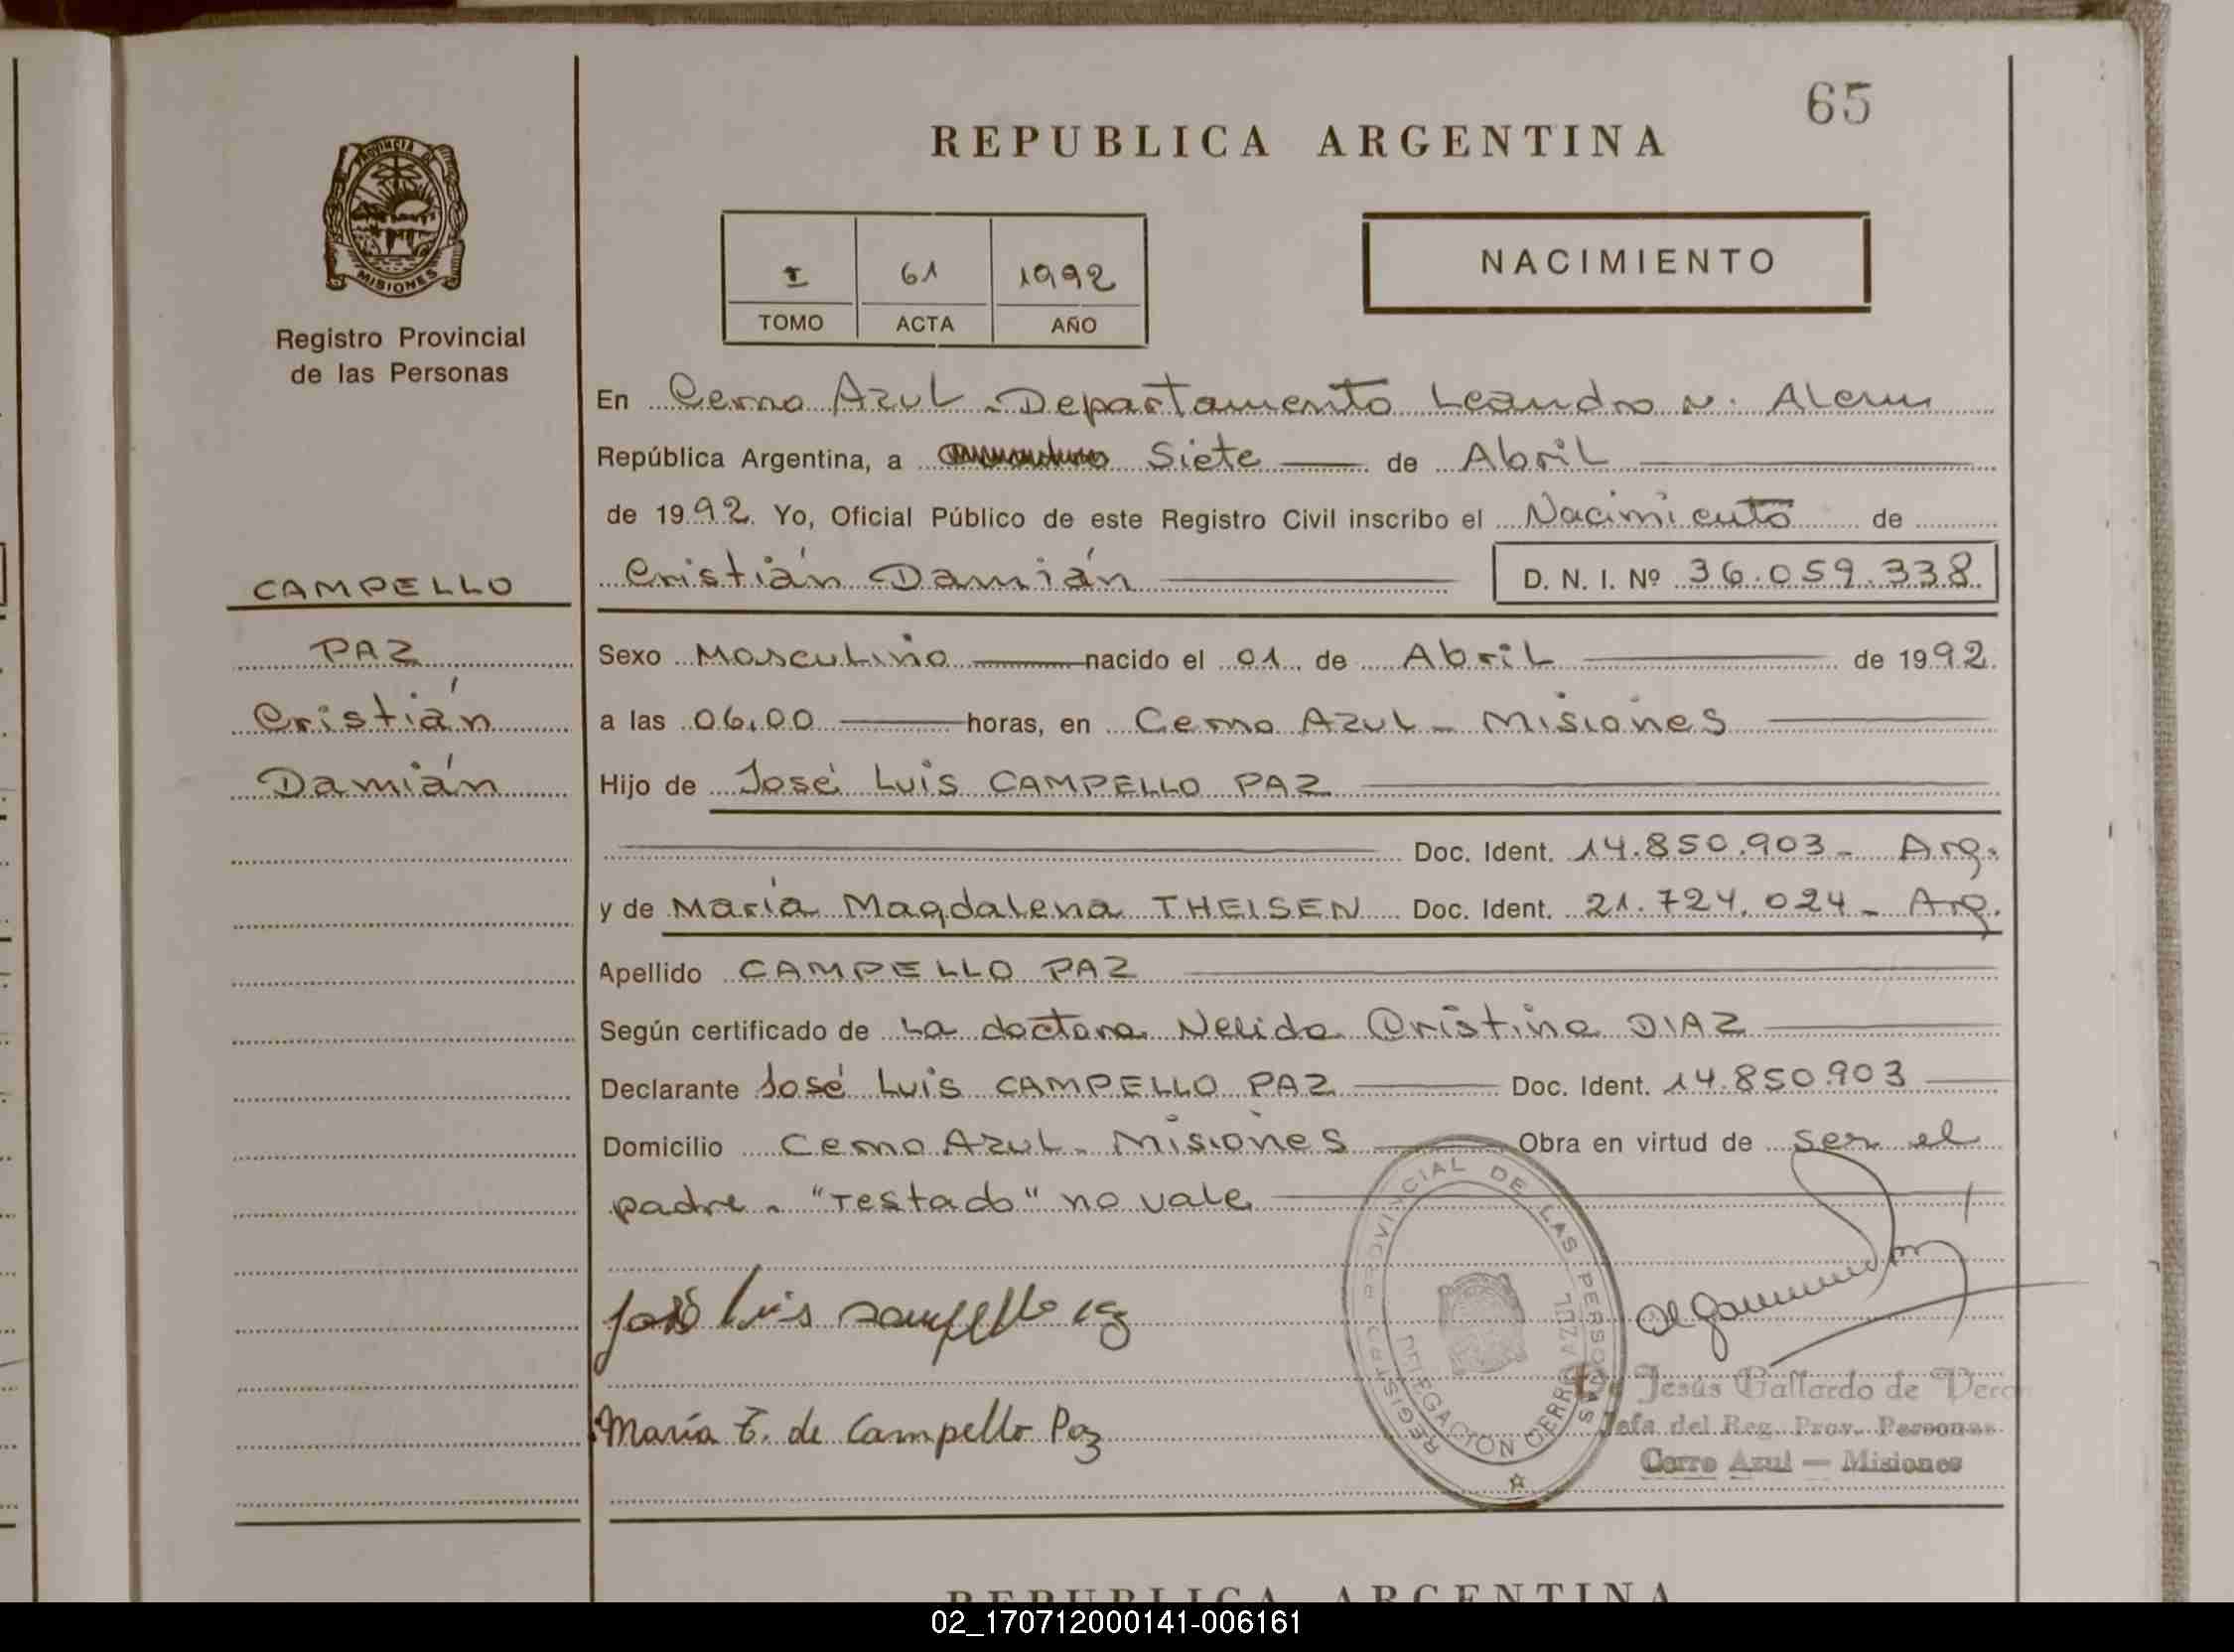 65
REPUBLICA ARGENTINA
PROVINCIA DE
MISIONES
Registro Provincial
de las Personas
I 61 1992
TOMO ACTA AÑO
NACIMIENTO
En Cerro Azul - Departamento Leandro N. Alem
República Argentina, a Siete de Abril
de 1992. Yo, Oficial Público de este Registro Civil inscribo el Nacimiento de
Cristián Damián D. N. I. Nº 36.059.338
CAMPELLO
PAZ
Cristián
Damián
Sexo Masculino nacido el 01 de Abril de 1992.
a las 06,00 horas, en Cerro Azul - Misiones
Hijo de José Luis CAMPELLO PAZ
Doc. Ident. 14.850.903 - Arg.
y de María Magdalena THEISEN Doc. Ident. 21.724.024 - Arg.
Apellido CAMPELLO PAZ
Según certificado de La doctora Nelida Cristina DIAZ
Declarante José Luis CAMPELLO PAZ Doc. Ident. 14.850.903
Domicilio Cerro Azul - Misiones Obra en virtud de ser el
padre. "Testado" no vale
José Luis Campello Paz
María T. de Campello Paz
REGISTRO PROVINCIAL DE LAS PERSONAS
DELEGACION CERRO AZUL
Jesús Gallardo de Veron
Jefa del Reg. Prov. Personas
Cerro Azul — Misiones
REPUBLICA ARGENTINA
02_170712000141-006161